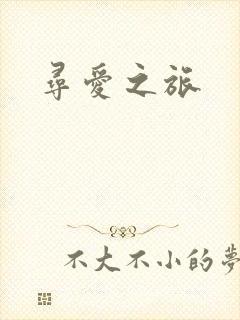 尋愛之旅
不大不小的夢